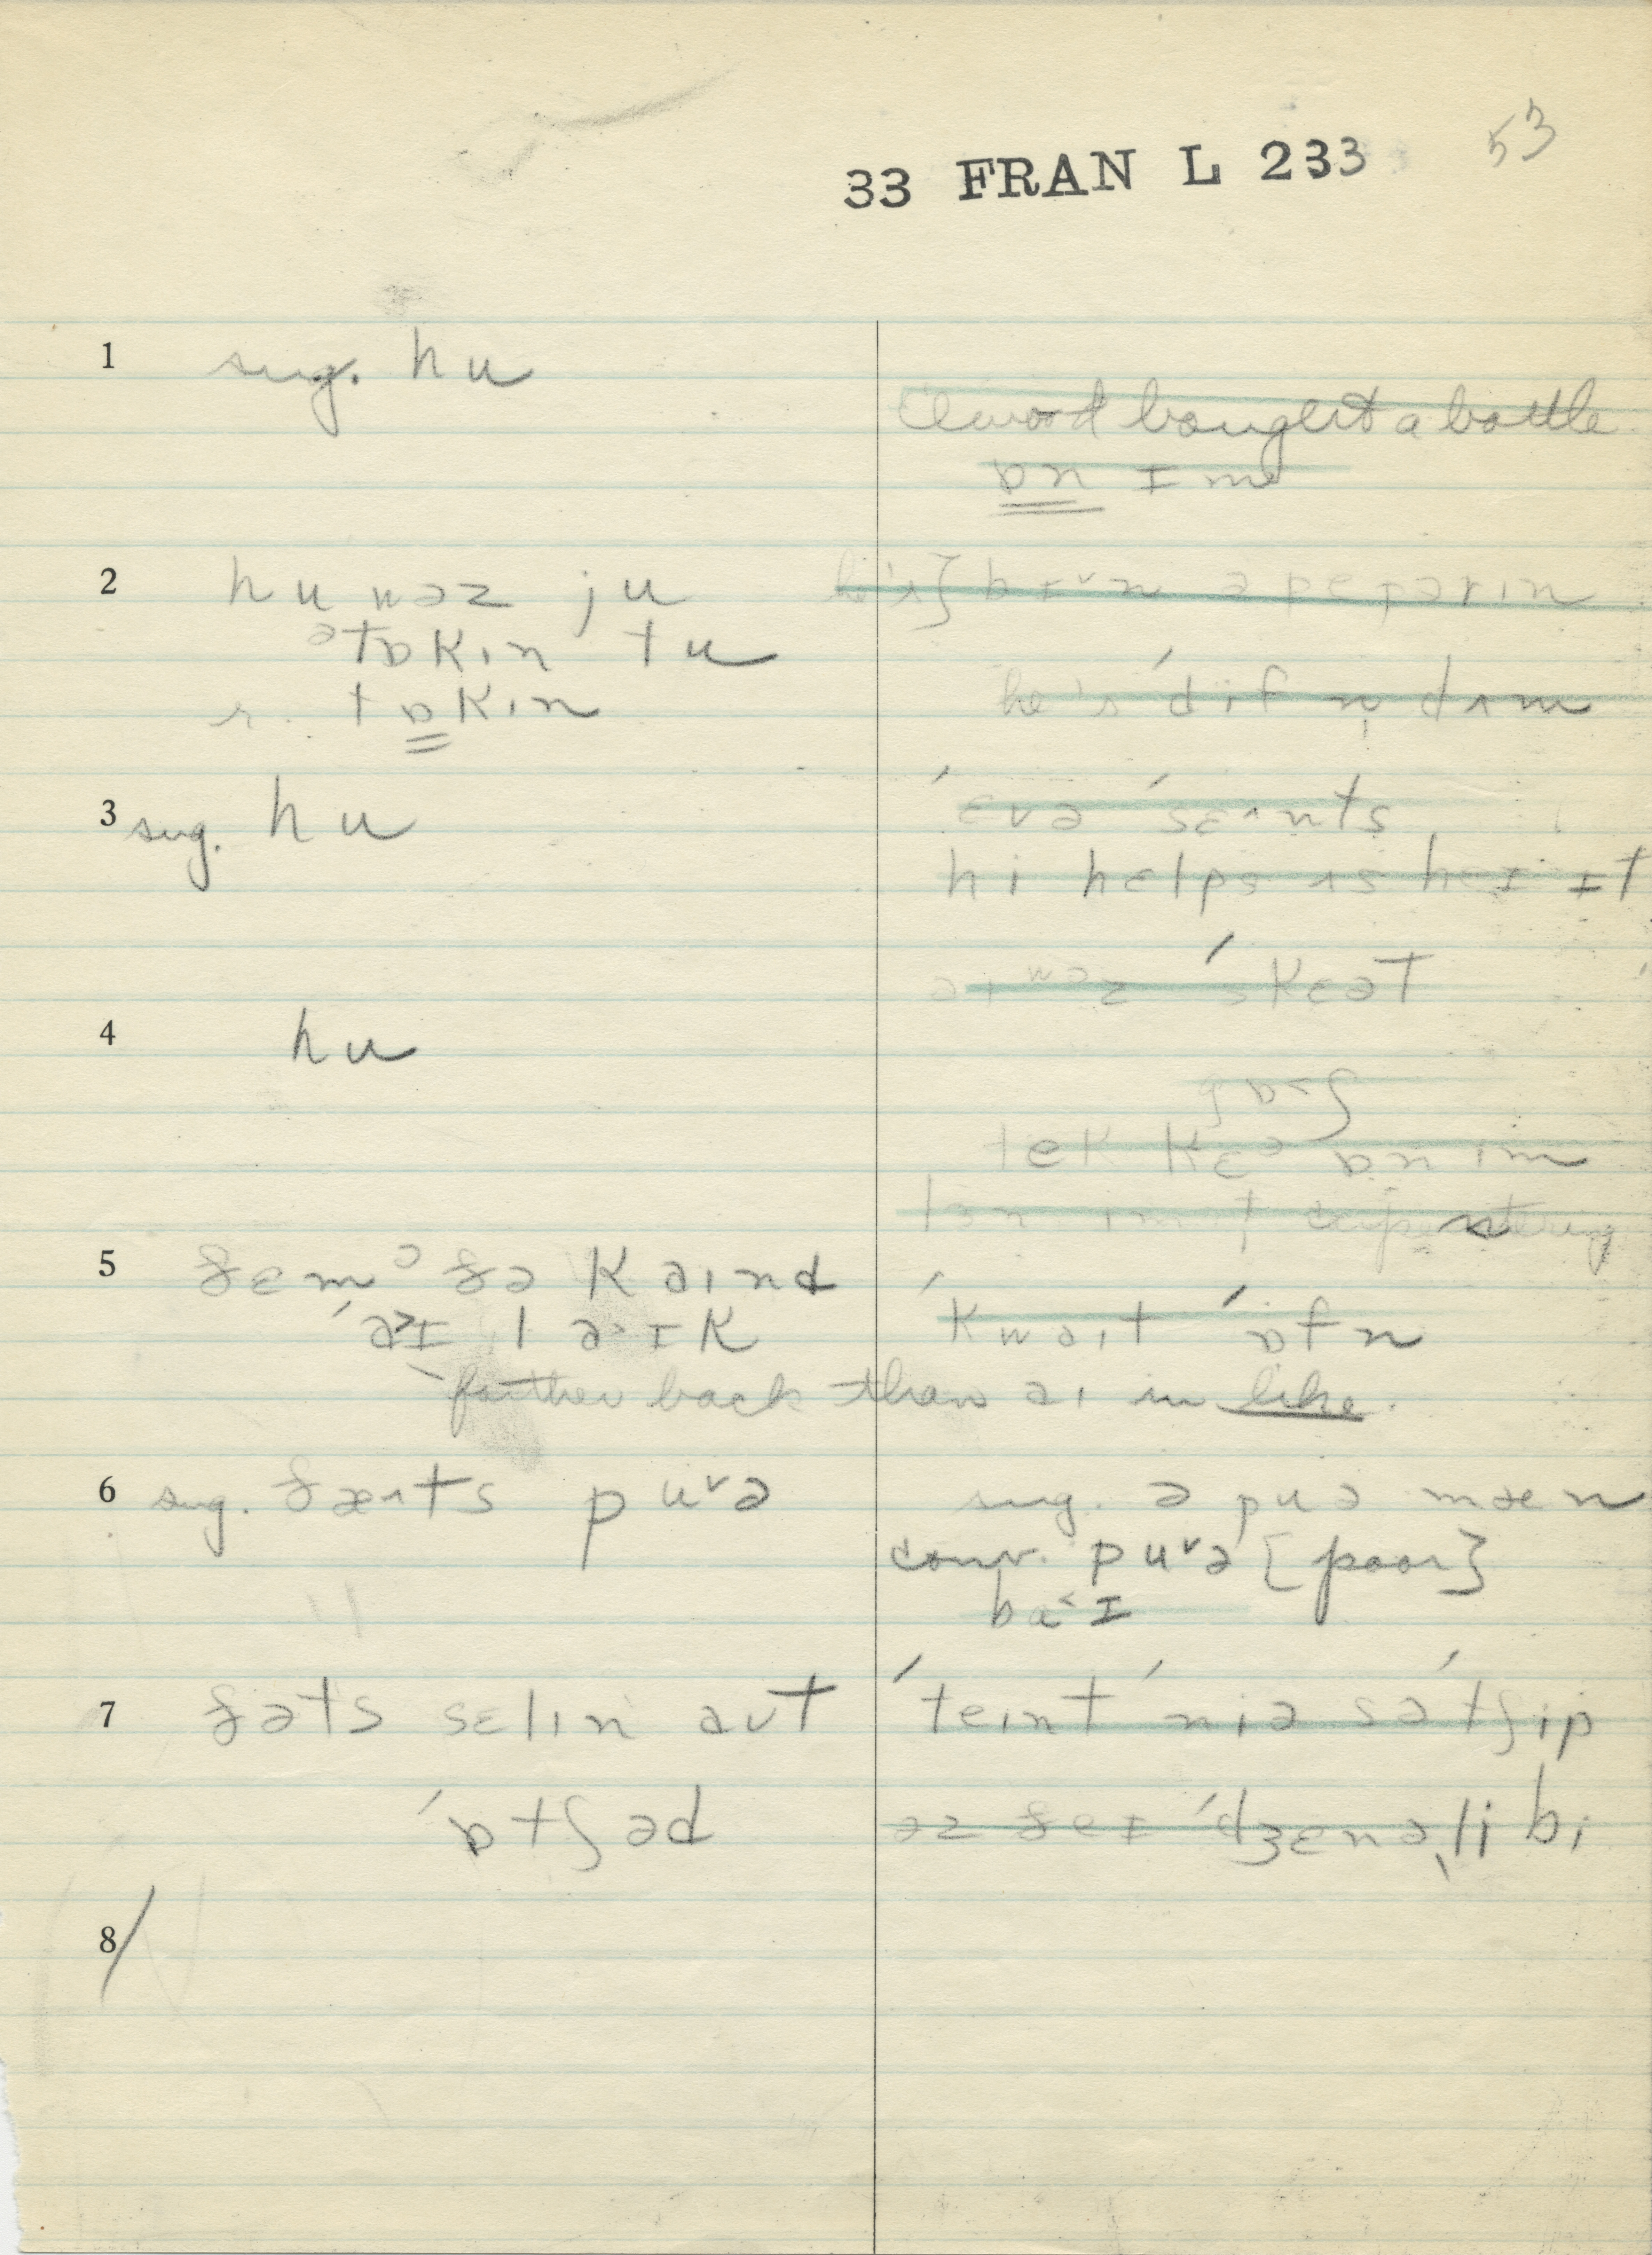 33 FRAN L 233 53
1 sug. hu
Elwood bought a bottle
ɒn ɪm
2 hu wəz ju
ətɒkɪn tu
r. tɒkɪn
he's} bɪ˅n əpepərɪn
he's ˈdif n̩ dʌm
3 sug. hu
ˈɛvə ˈsɛʌnts
hi hɛlps ʌs heɪ ɪt
aɪ wəz ˈskɛət
4 hu
gɒ˂ʃ
tek kɛə ɒn ɪm
5 ðɛmᵊ ðə kaɪnd
ˈa˃ɪ la˃ɪk
farther back than aɪ in like.
ˈkwaɪt ˈɒfn
6 sug. ðæʌts pu˅ə
sug. ə puə mæn
conv. pu˅ə [poor]
ba˂ɪ
7 ðəts sɛlɪn aʊt
ˈɒtʃəd
ˈteɪnt ˈniə sə ˈtʃip
əz ðeɪ ˈdʒɛnəˌli bi
8